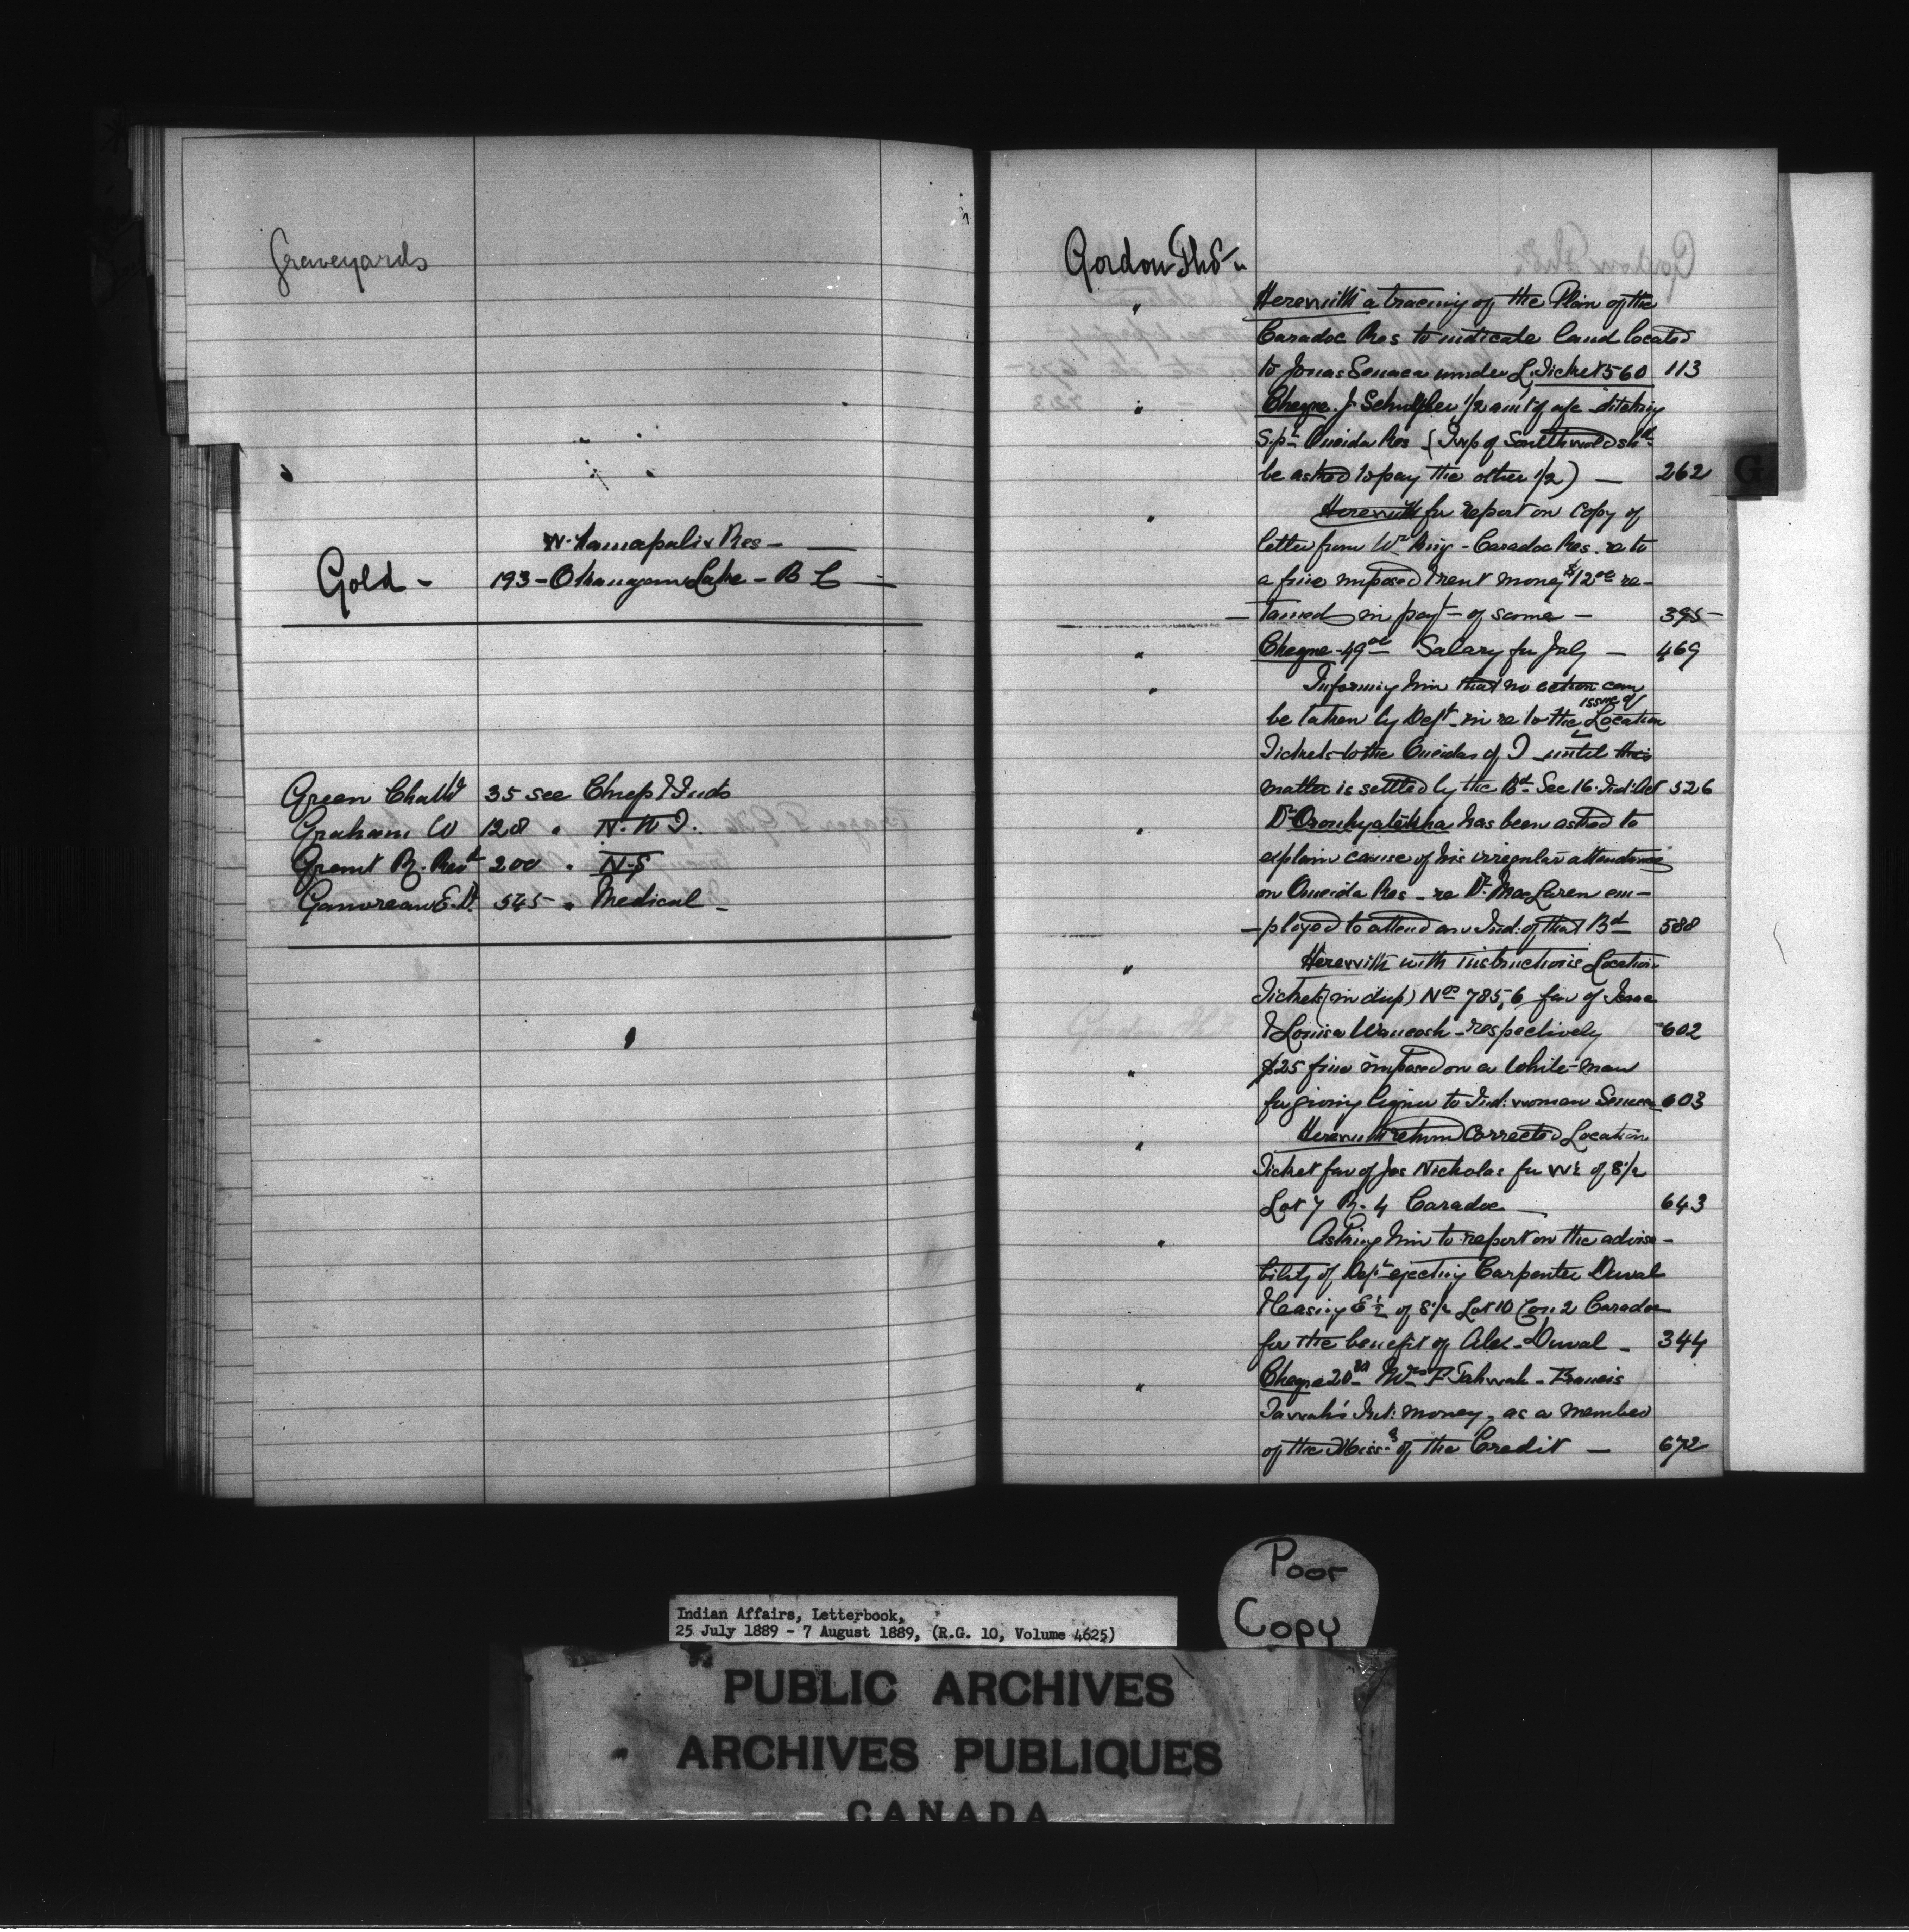 Graveyards
Res -
Gold - 193 - Okanagan Lake - B C -
Green Chas W 35 see Chiefs & Inds
Graham W 128 " N. W. T.
Grant R. Revd 200 " N.S
Gauvreau E. D. 545 " Medical -
Gordon Thos
" Herewith a tracing of the Plan of the
Caradoc Res to indicate land located
to Jonas Seneca under L. Ticket 560 113
" Cheque J. 1/2 amt of a/c ditching
Oneida Res (Twp of Southwold shd
be asked to pay the other 1/2) - 262
" Herewith for report on copy of
letter from Wm King - Caradoc Res. re to
a fine imposed & rent money $12 00 re-
tained in payt of same - 395
" Cheque 49 00 Salary for July - 469
" Informing him that no action can
issue of
be taken by Dept in re to the Location
Tickets to the Oneidas of T until this
matter is settled by the Bd Sec 16 Ind: Act 526
" Dr Oronhyatekha has been asked to
explain cause of his irregular attendance
on Oneida Res - re Dr MacLaren em-
ployed to attend an Ind: of that Bd 588
" Herewith with instructions Location
Tickets (in dup) Nos 785, 6 fav of
& Louisa Waucosh - respectively 602
" $25 fine imposed on a White man
for giving liquor to Ind: woman Seneca 603
" Herewith return Corrected Location
Ticket fav of Jas Nicholas for W 1/2 of S 1/2
Lot 7 R. 4 Caradoc 643
" Asking him to report on the advisa-
bility of Dept ejecting Carpenter Duval
& leasing E 1/2 of S 1/2 Lot 10 Con 2 Caradoc
for the benefit of Alex. Duval - 344
" Cheque 20 Tahwah - Francis
Tawah's Int: money, as a member
of the Miss:s of the Credit - 672
G
Poor
Copy
Indian Affairs, Letterbook,
25 July 1889 - 7 August 1889, (R.G. 10, Volume 4625)
PUBLIC ARCHIVES
ARCHIVES PUBLIQUES
CANADA